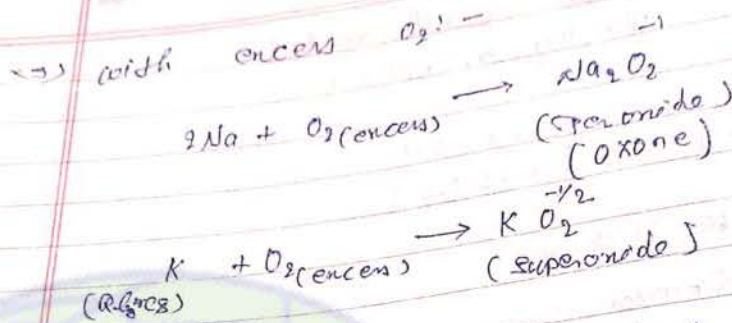 with excess O₂ :-
2Na + O₂(excess) ⟶ Na₂O₂ ⁻¹
(Peroxide)
(Oxone)
K + O₂(excess) ⟶ K O₂ ⁻¹/²
(superoxide)